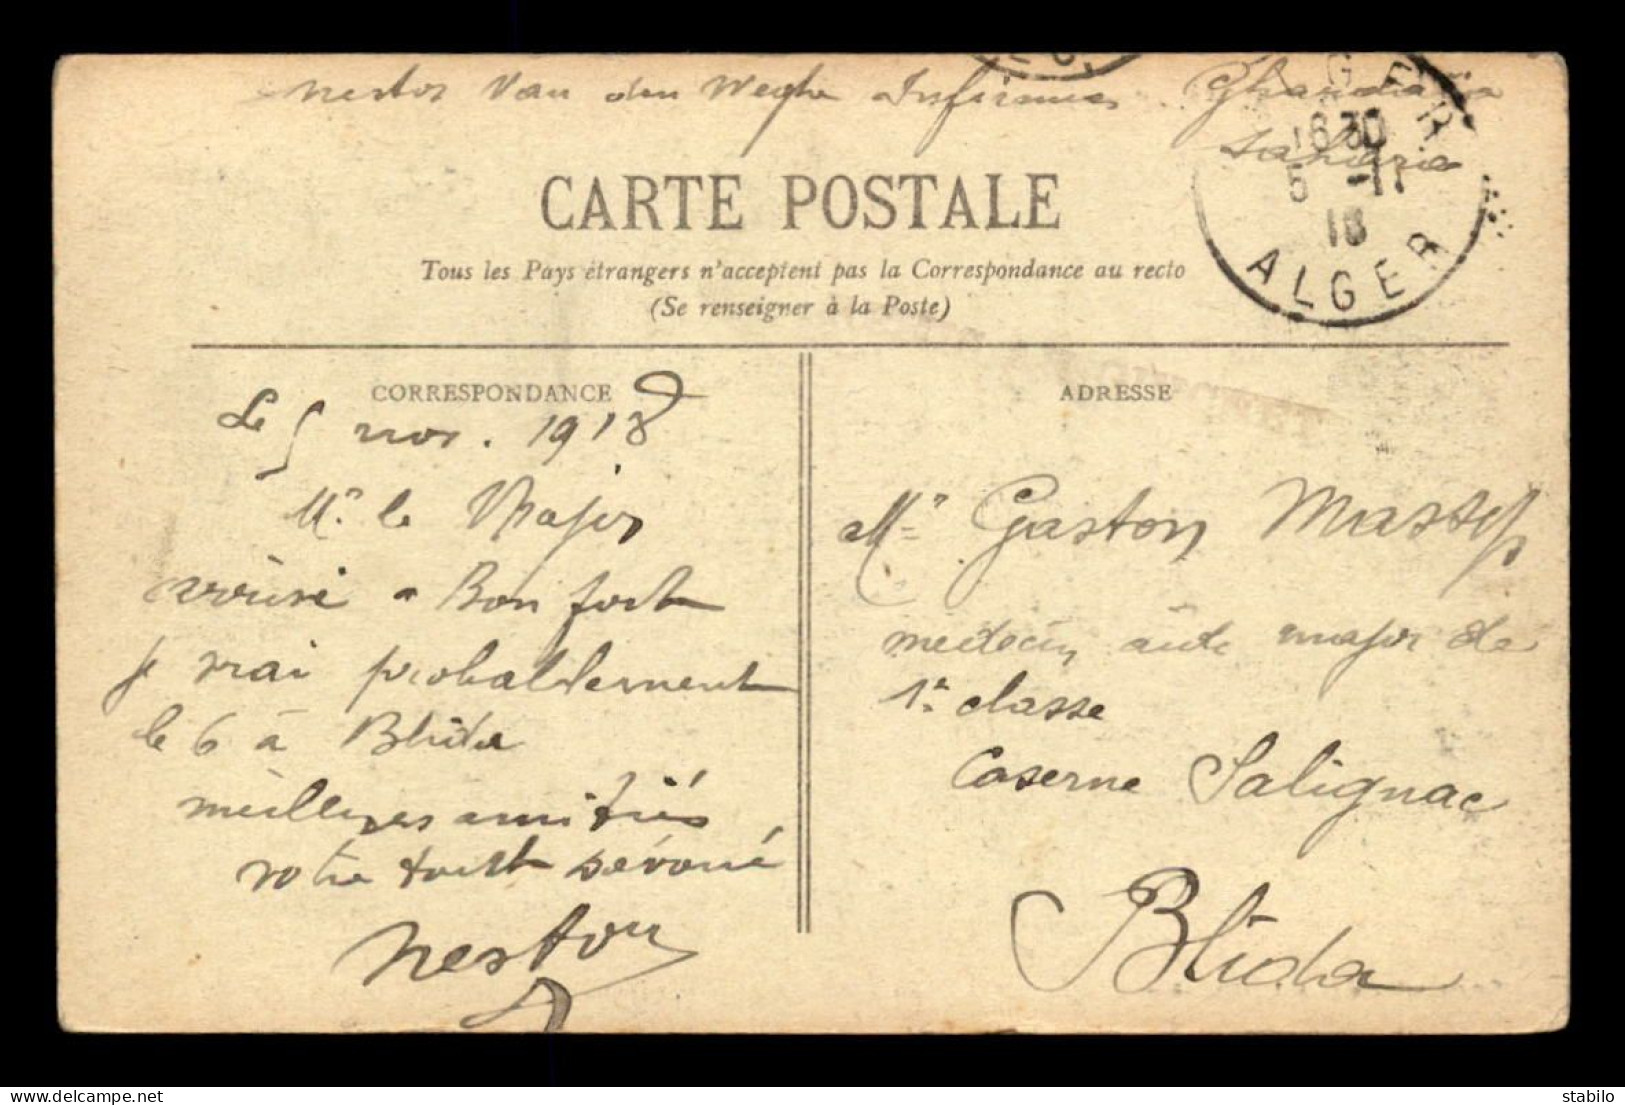 Nestor Van den Weghe Infirmier
CARTE POSTALE
Tous les Pays étrangers n'acceptent pas la Correspondance au recto
(Se renseigner à la Poste)
ALGER
1630
5 -11
18
ALGER
CORRESPONDANCE
Le 5 nov. 1918
Mr le Major
arrivé à Bon fort
je vrai probablement
le 6 à Blida
meilleures amitiés
votre tout dévoué
Nestor
ADRESSE
Mr Gaston Massyp
médecin aide major de
1e classe
Caserne Salignac
Blida
delcampe.net
salsilo